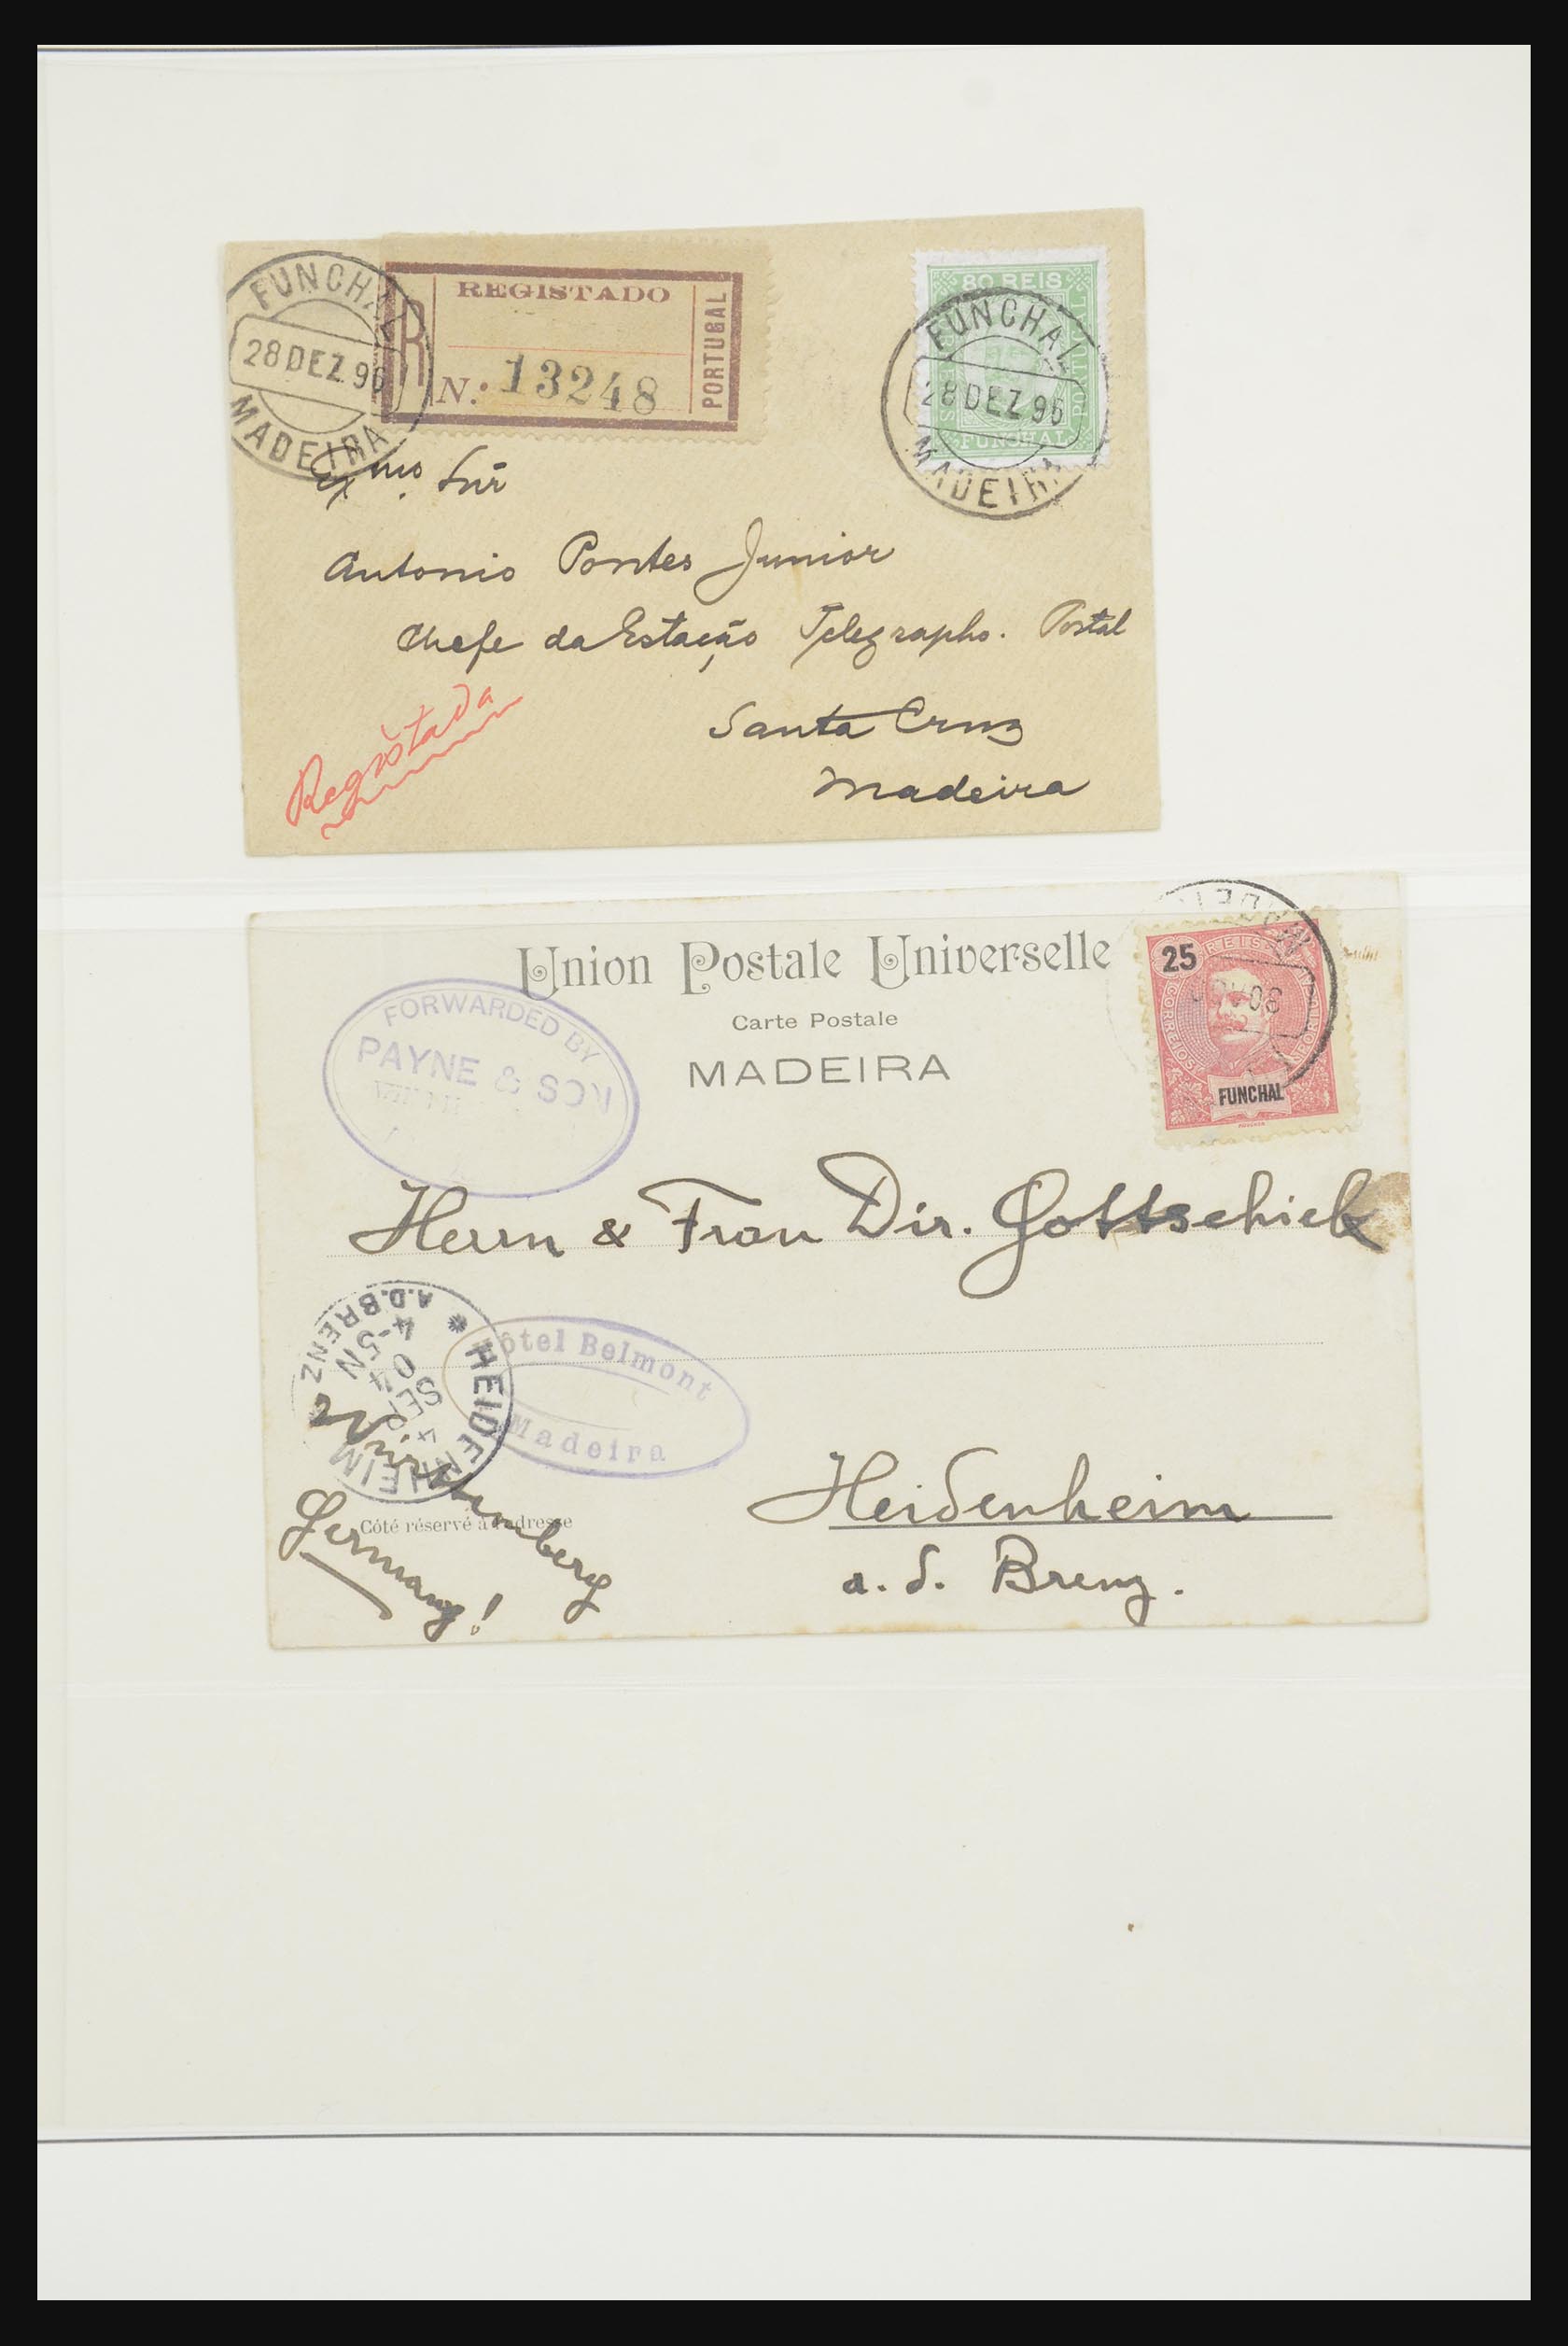 FUNCHAL
28 DEZ 96
MADEIRA
R
REGISTADO
N.º 13248
PORTUGAL
80 REIS
FUNCHAL
PORTUGAL
FUNCHAL
28 DEZ 96
MADEIRA
Exmo. Snr
Antonio Pontes Junior
Chefe da Estação Telegrapho. Postal
Santa Cruz
Madeira
Registada
Union Postale Universelle
Carte Postale
MADEIRA
FORWARDED BY
PAYNE & SON
25
REIS
CORREIOS
FUNCHAL
Herrn & Frau Dir. Gottschick
HEIDENHEIM
A.D. BRENZ
4 SEP 04
4-5N
Hôtel Belmont
Madeira
Heidenheim
a. d. Brenz.
Côté réservé à l'adresse
Württemberg
Germany!